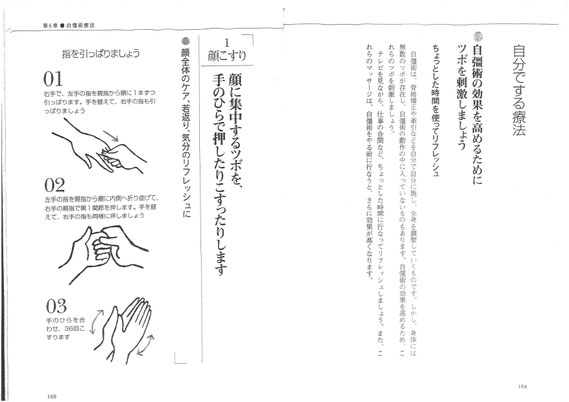 自分でする療法
自彊術の効果を高めるために
ツボを刺激しましょう
ちょっとした時間を使ってリフレッシュ
自彊術は、骨格矯正や牽引などを自分で自分に施し、全身を調整していくものです。しかし、身体には
無数のツボが存在し、自彊術の動作の中に入っていないものもあります。自彊術の効果を高めるため、こ
れらのツボを刺激しましょう。
テレビを見ながら、仕事の合間など、ちょっとした時間に行なってリフレッシュしましょう。また、こ
れらのマッサージは、自彊術をやる前に行なうと、さらに効果が高くなります。
164
第6章 ● 自彊術療法
1
顔こすり
顔に集中するツボを、
手のひらで押したりこすったりします
●顔全体のケア、若返り、気分のリフレッシュに
指を引っぱりましょう
01
右手で、左手の指を親指から順に1本ずつ
引っぱります。手を替えて、右手の指も引
っぱりましょう
02
左手の指を親指から順に内側へ折り曲げて、
右手の親指で第1関節を押します。手を替
えて、右手の指も同様に押しましょう
03
手のひらを合
わせ、36回こ
すります
165